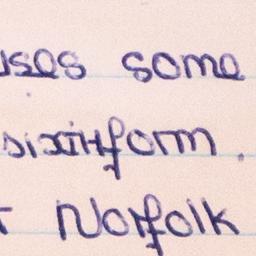 uses some
sixthform.
Norfolk